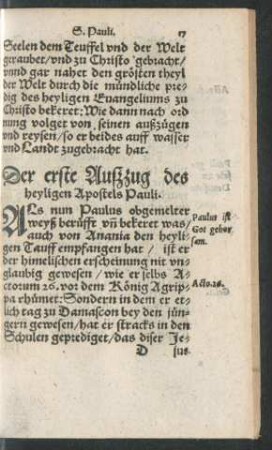 S. Pauli. 17
Seelen dem Teuffel vnd der Welt
geraubet/vnd zu Christo gebracht/
vnnd gar nahet den grösten theyl
der Welt durch die mündliche pre-
dig des heyligen Euangeliums zu
Christo bekeret: Wie dann nach ord
nung volget von seinen außzügen
vnd reysen/so er beides auff wasser
vnd Landt zugebracht hat.
Der erste Außzug des
heyligen Apostels Pauli.
ALs nun Paulus obgemelter
weyß berüfft vñ bekeret was/
auch von Anania den heyli-
gen Tauff empfangen hat/ist er
der himelischen erscheinung nit vn-
glaubig gewesen/wie er selbs A-
ctorum 26. vor dem König Agrip-
pa rhümet: Sondern in dem er et-
lich tag zu Damascon bey den jün-
gern gewesen/hat er stracks in den
Schulen geprediget/das diser Je-
D sus
Paulus ist
Got gehor
sam.
Acto. 26.